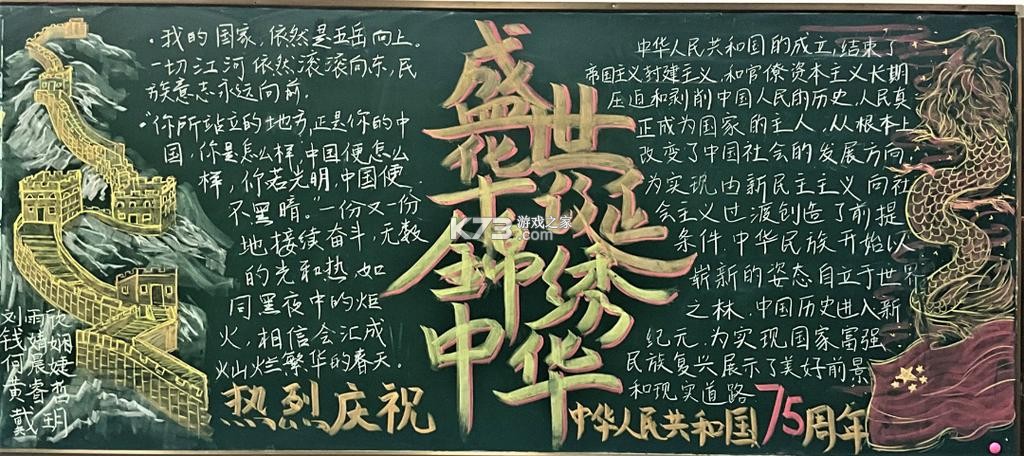 ·我的国家,依然是五岳向上。
一切江河依然滚滚向东,民
族意志永远向前.
·"你所站立的地方,正是你的中
国,你是怎么样,中国便怎么
样,你若光明,中国便
不黑暗。"一份又一份
地接续奋斗,无数
的光和热,如
同黑夜中的炬
火,相信会汇成
灿烂繁华的春天.
刘雨欣
钱婧娴
何晨婕
黄睿哲
戴玥
热烈庆祝
盛世
华诞
锦绣
中华
K73 游戏之家
.com
中华人民共和国的成立,结束了
帝国主义封建主义,和官僚资本主义长期
压迫和剥削中国人民的历史,人民真
正成为国家的主人,从根本上
改变了中国社会的发展方向,
为实现由新民主主义向社
会主义过渡创造了前提
条件.中华民族开始以
崭新的姿态自立于世界
之林,中国历史进入新
纪元.为实现国家富强
民族复兴展示了美好前景
和现实道路
中华人民共和国75周年